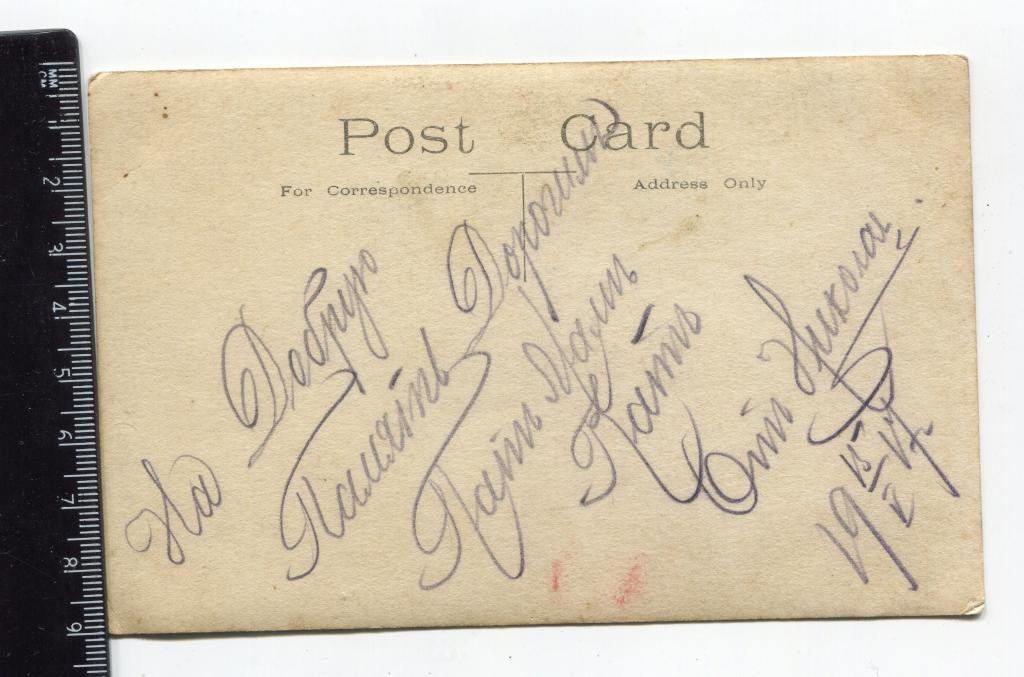 Post Card
For Correspondence
Address Only
На Добрую
Память Дорогим
Кать
От Николая.
19 15/V 17
MM
CM
1
2
3
4
5
6
7
8
9